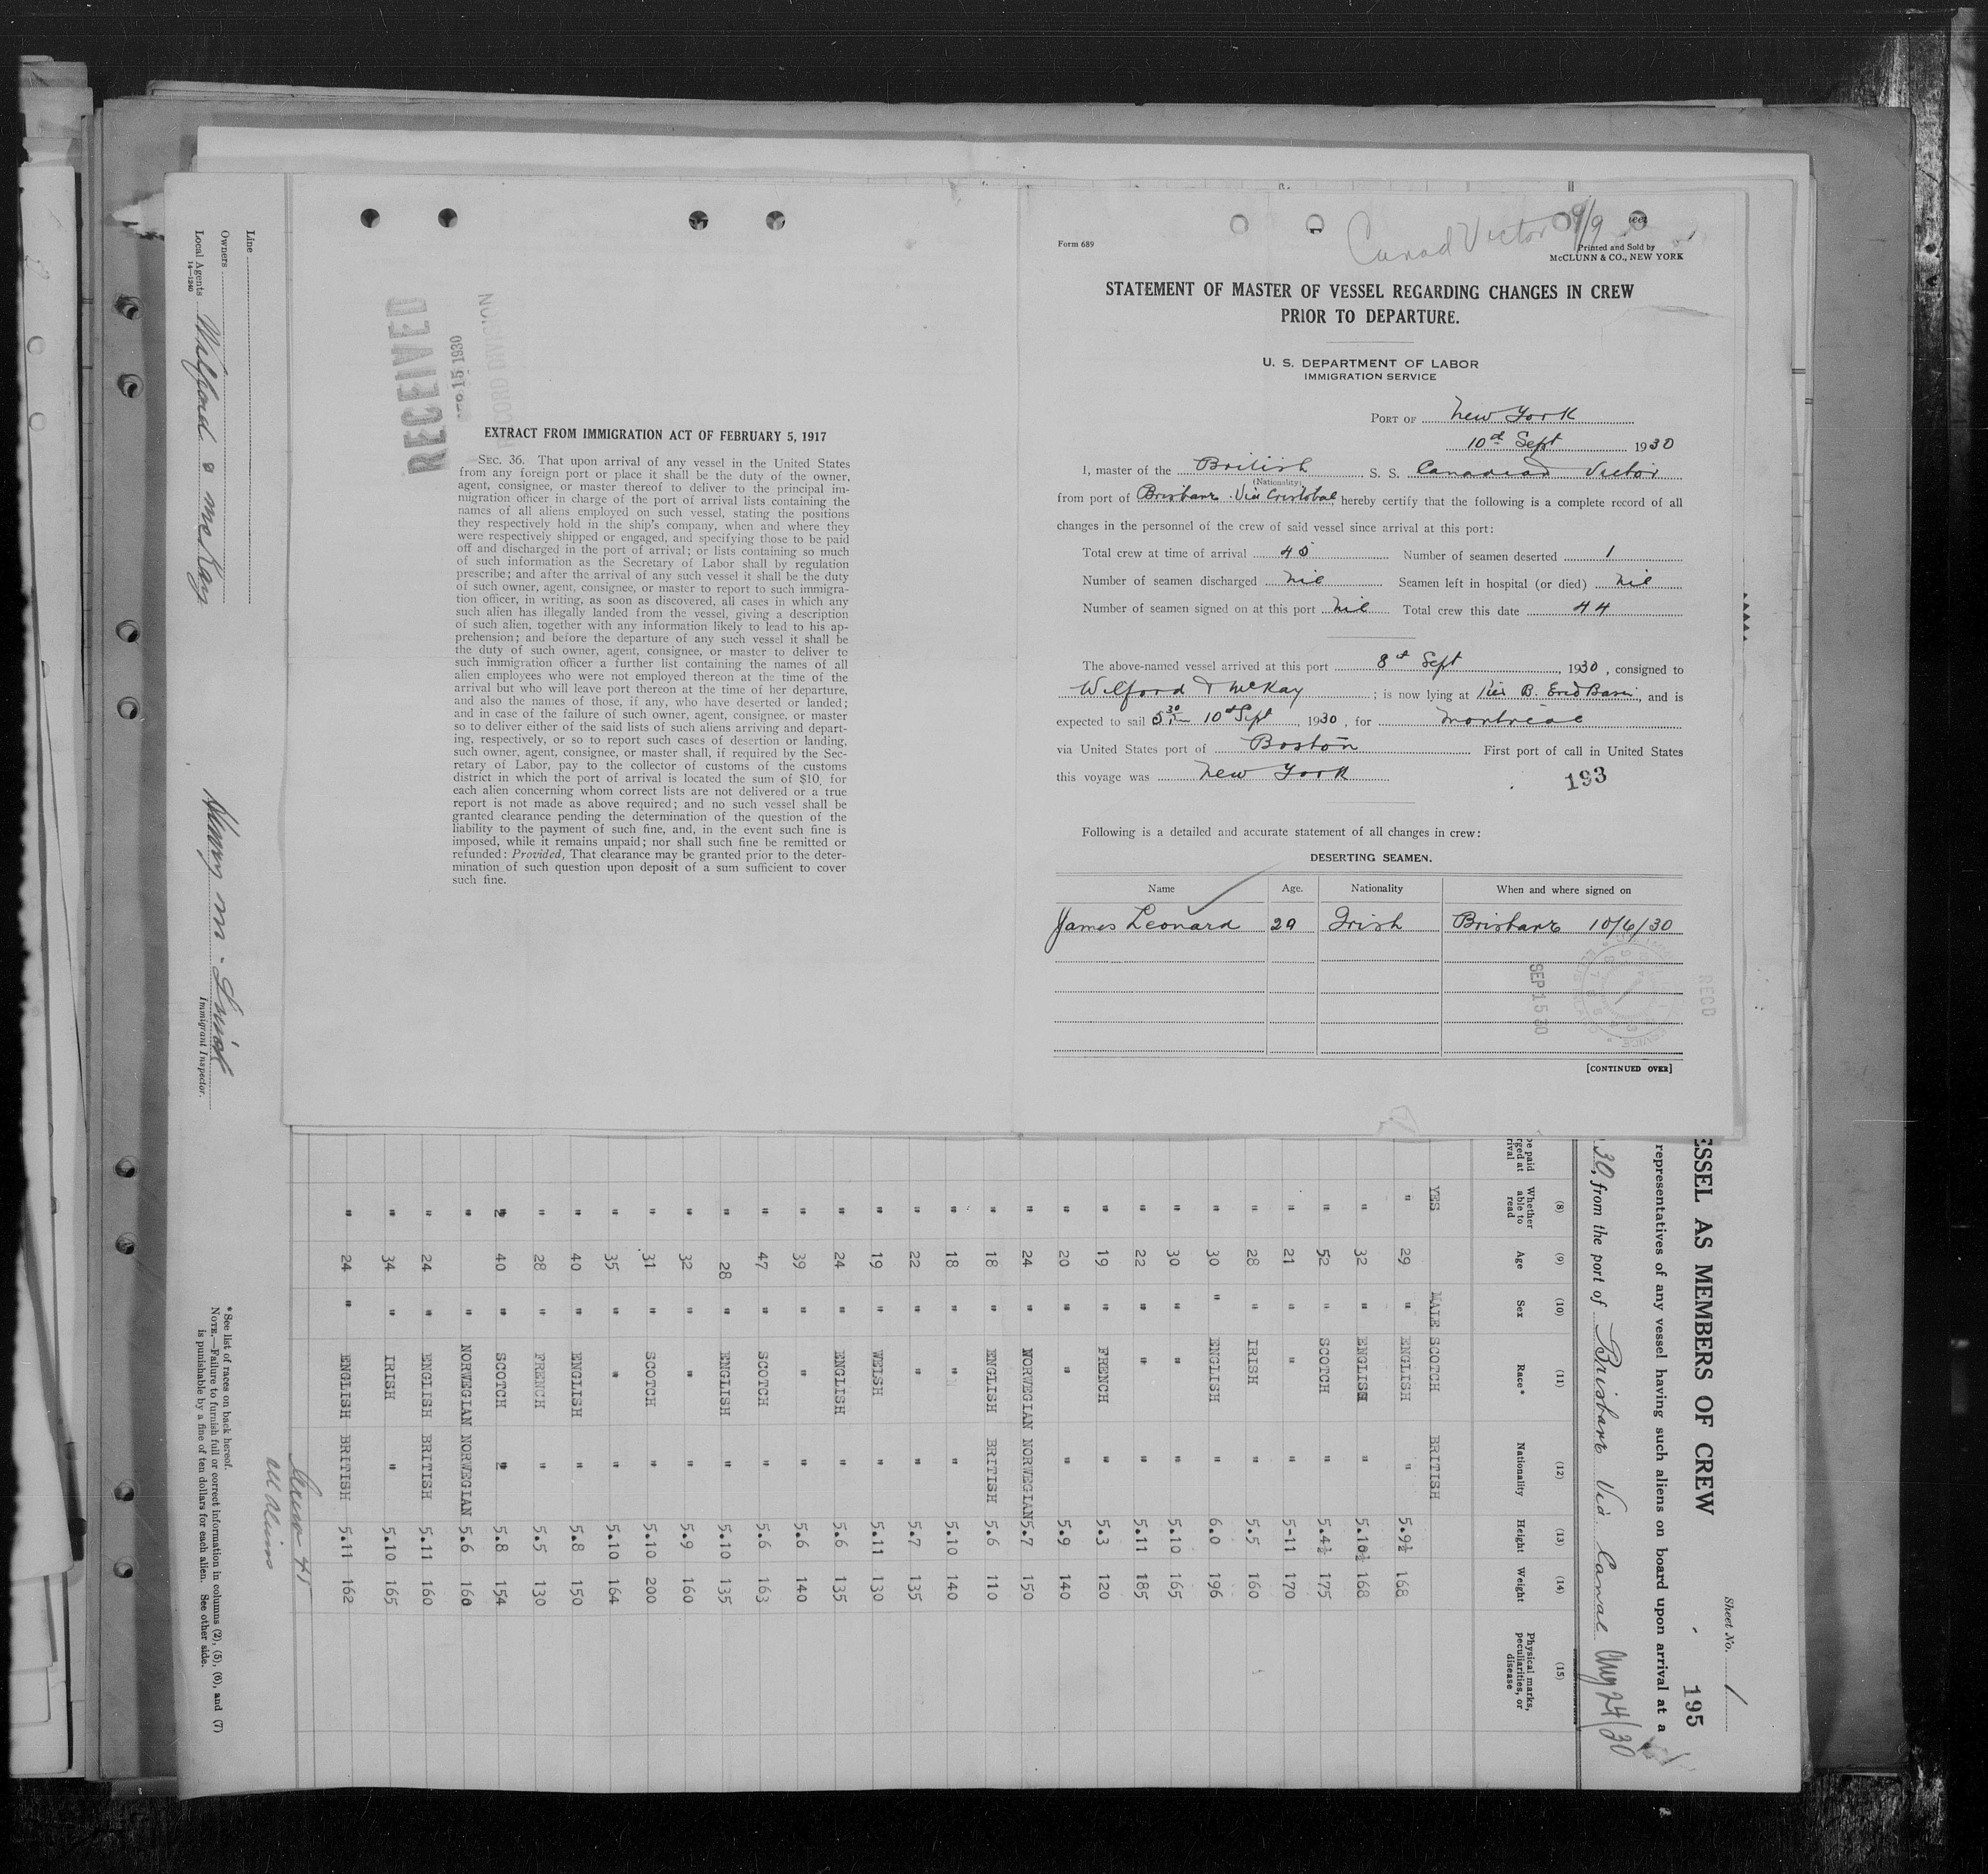 Canad Victor 9/9
Form 689
Printed and Sold by
McCLUNN & CO., NEW YORK
STATEMENT OF MASTER OF VESSEL REGARDING CHANGES IN CREW
PRIOR TO DEPARTURE.
U. S. DEPARTMENT OF LABOR
IMMIGRATION SERVICE
PORT OF New York
10th Sept 1930
I, master of the British S. S. Canadian Victor
(Nationality)
from port of Brisbane Via Cristobal, hereby certify that the following is a complete record of all
changes in the personnel of the crew of said vessel since arrival at this port:
Total crew at time of arrival 45 Number of seamen deserted 1
Number of seamen discharged nil Seamen left in hospital (or died) nil
Number of seamen signed on at this port Nil Total crew this date 44
The above-named vessel arrived at this port 8th Sept, 1930, consigned to
Wilford & McKay; is now lying at Pier B. Erie Basin, and is
expected to sail 10th Sept, 1930, for Montreal
via United States port of Boston First port of call in United States
this voyage was New York
193
Following is a detailed and accurate statement of all changes in crew:
DESERTING SEAMEN.
Name Age. Nationality When and where signed on
James Leonard 29 Irish Brisbane 10/6/30
SEP 15 30
RECD
[CONTINUED OVER]
RECEIVED
15 1930
RECORD DIVISION
EXTRACT FROM IMMIGRATION ACT OF FEBRUARY 5, 1917
SEC. 36. That upon arrival of any vessel in the United States
from any foreign port or place it shall be the duty of the owner,
agent, consignee, or master thereof to deliver to the principal im-
migration officer in charge of the port of arrival lists containing the
names of all aliens employed on such vessel, stating the positions
they respectively hold in the ship's company, when and where they
were respectively shipped or engaged, and specifying those to be paid
off and discharged in the port of arrival; or lists containing so much
of such information as the Secretary of Labor shall by regulation
prescribe; and after the arrival of any such vessel it shall be the duty
of such owner, agent, consignee, or master to report to such immigra-
tion officer, in writing, as soon as discovered, all cases in which any
such alien has illegally landed from the vessel, giving a description
of such alien, together with any information likely to lead to his ap-
prehension; and before the departure of any such vessel it shall be
the duty of such owner, agent, consignee, or master to deliver to
such immigration officer a further list containing the names of all
alien employees who were not employed thereon at the time of the
arrival but who will leave port thereon at the time of her departure,
and also the names of those, if any, who have deserted or landed;
and in case of the failure of such owner, agent, consignee, or master
so to deliver either of the said lists of such aliens arriving and depart-
ing, respectively, or so to report such cases of desertion or landing,
such owner, agent, consignee, or master shall, if required by the Sec-
retary of Labor, pay to the collector of customs of the customs
district in which the port of arrival is located the sum of $10 for
each alien concerning whom correct lists are not delivered or a true
report is not made as above required; and no such vessel shall be
granted clearance pending the determination of the question of the
liability to the payment of such fine, and, in the event such fine is
imposed, while it remains unpaid; nor shall such fine be remitted or
refunded: Provided, That clearance may be granted prior to the deter-
mination of such question upon deposit of a sum sufficient to cover
such fine.
Sheet No. 1
195
ESSEL AS MEMBERS OF CREW
representatives of any vessel having such aliens on board upon arrival at a
30, from the port of Brisbane Via Canal Aug 24/30
(8) (9) (10) (11) (12) (13) (14) (15)
Whether able to read Age Sex Race* Nationality Height Weight Physical marks, peculiarities, or disease
YES MALE SCOTCH BRITISH
" 29 " ENGLISH " 5.9½ 168
" 32 " ENGLISH " 5.10½ 168
" 52 " SCOTCH " 5.4½ 175
" 21 " " " 5-11 170
" 28 " IRISH " 5.5 160
" 30 " ENGLISH " 6.0 196
" 30 " " " 5.10 165
" 22 " " " 5.11 185
" 19 " FRENCH " 5.3 120
" 20 " " " 5.9 140
" 24 " NORWEGIAN NORWEGIAN 5.7 150
" 18 " ENGLISH BRITISH 5.6 110
" 18 " " " 5.10 140
" 22 " " " 5.7 135
" 19 " WELSH " 5.11 130
" 24 " ENGLISH " 5.6 135
" 39 " " " 5.6 140
" 47 " SCOTCH " 5.6 163
" 28 " ENGLISH " 5.10 135
" 32 " " " 5.9 160
" 31 " SCOTCH " 5.10 200
" 35 " " " 5.10 164
" 40 " ENGLISH " 5.8 150
" 28 " FRENCH " 5.5 130
" 40 " SCOTCH " 5.8 154
" " NORWEGIAN NORWEGIAN 5.6 160
" 24 " ENGLISH BRITISH 5.11 160
" 34 " IRISH " 5.10 165
" 24 " ENGLISH BRITISH 5.11 162
Crew 45
all aliens
Line
Owners
Local Agents Wilford & McKay
14-1240
Henry M.
Immigrant Inspector.
* See list of races on back hereof.
NOTE.—Failure to furnish full or correct information in columns (2), (5), (6), and (7)
is punishable by a fine of ten dollars for each alien. See other side.